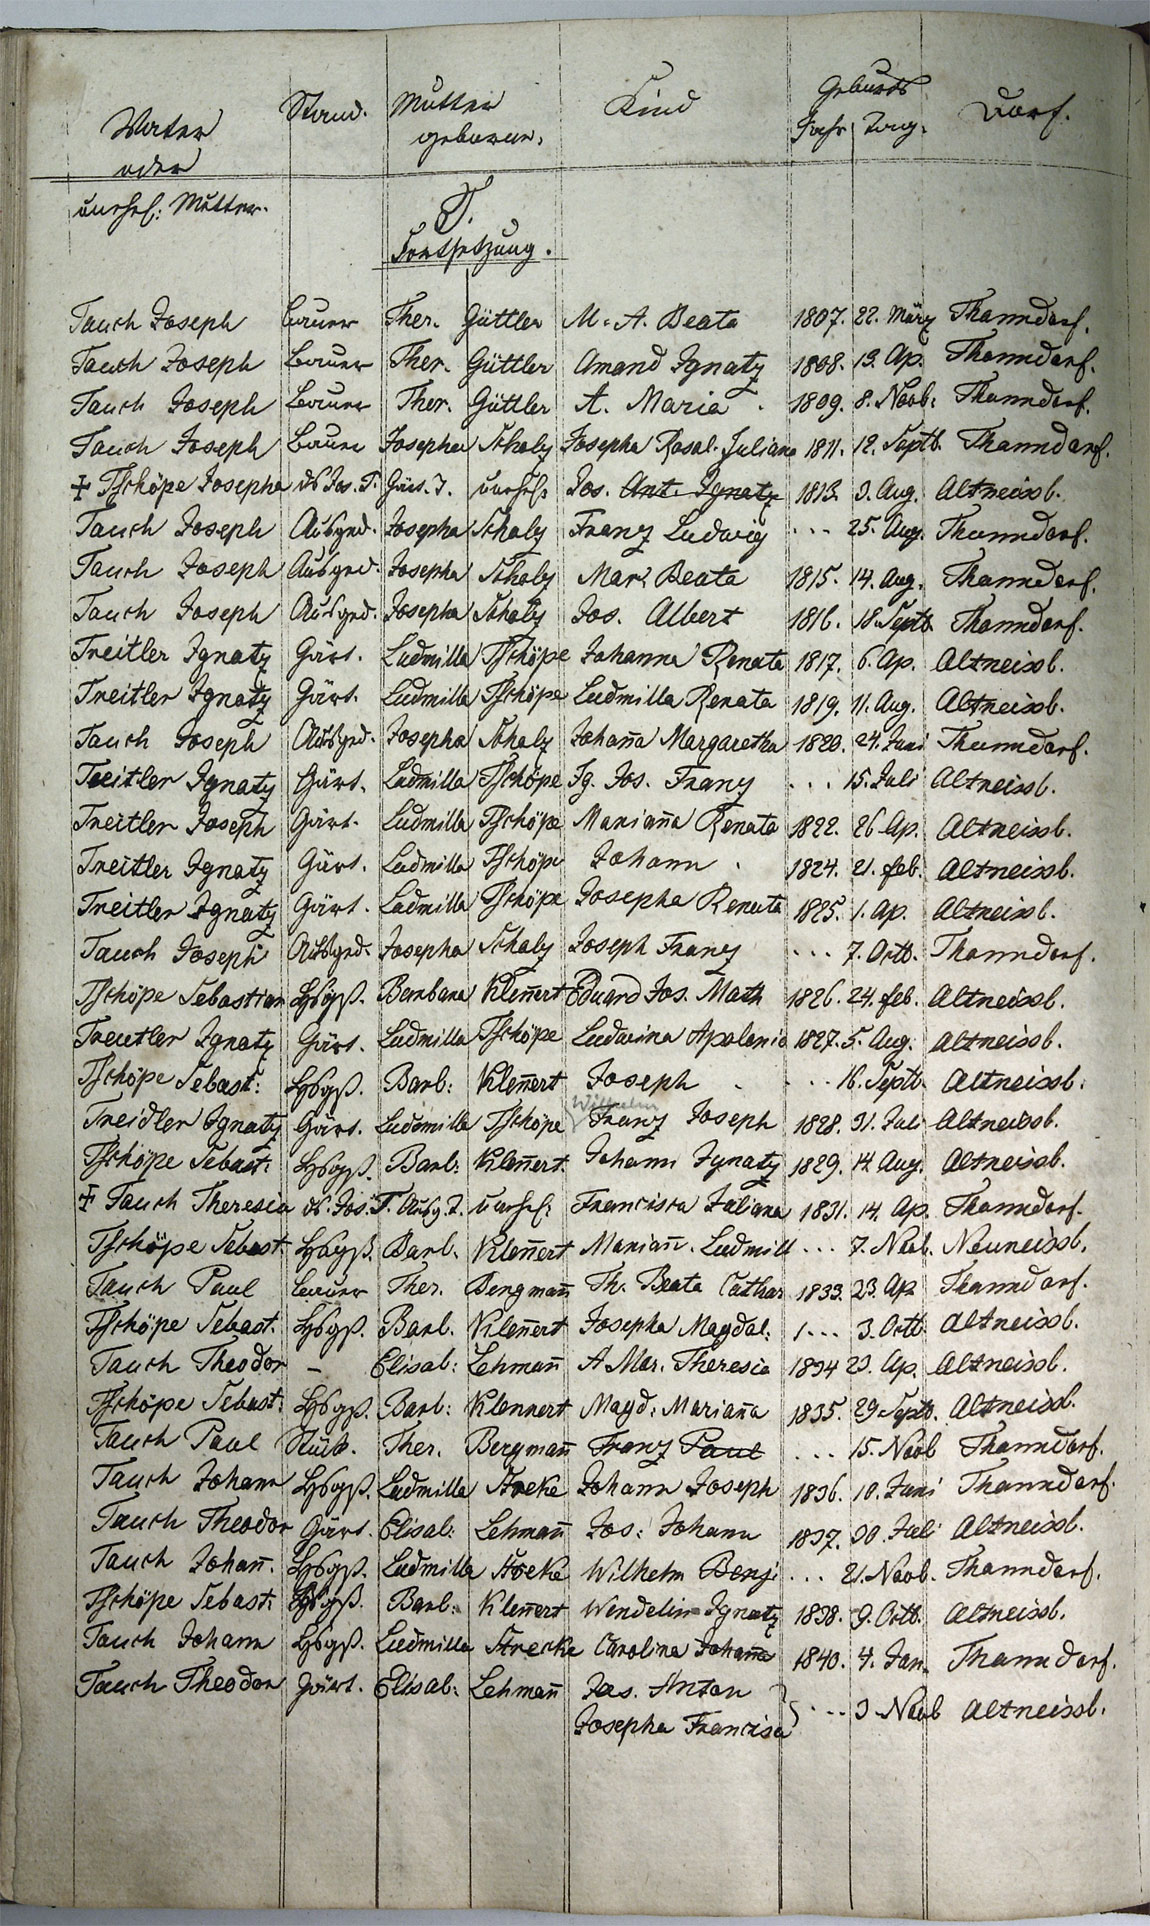 Vater Stand. Mutter Kind Geburts Dorf.
oder geborne. Jahr Tag.
unehel: Mutter.
T.
Fortsetzung.
Tauch Joseph Bauer Ther. Güttler M. A. Beata 1807. 22. März Thanndorf.
Tauch Joseph Bauer Ther. Güttler Amand Ignatz 1808. 13. Ap. Thanndorf.
Tauch Joseph Bauer Ther. Güttler A. Maria 1809. 8. Novb: Thanndorf.
Tauch Joseph Bauer Josepha Scholz Josepha Rosal. Juliana 1811. 12. Septb. Thanndorf.
‡ Tschöpe Josepha ds Jos. T. Gärt. T. unehel: Jos. Ant. Ignatz 1813. 3. Aug. Altneissb.
Tauch Joseph Ausged. Josepha Scholz Franz Ludwig . . . 25. Aug. Thanndorf.
Tauch Joseph Ausged. Josepha Scholz Mar. Beata 1815. 14. Aug. Thanndorf.
Tauch Joseph Ausged. Josepha Scholz Jos. Albert 1816. 18. Septb. Thanndorf.
Treitler Ignatz Gärt. Ludmilla Tschöpe Johanna Renata 1817. 6. Ap. Altneissb.
Treitler Ignatz Gärt. Ludmilla Tschöpe Ludmilla Renata 1819. 11. Aug. Altneissb.
Tauch Joseph Ausged. Josepha Scholz Johan̄a Margaretha 1820. 24. Juni Thanndorf.
Treitler Ignatz Gärt. Ludmilla Tschöpe Ig. Jos. Franz . . . 15. Juli Altneissb.
Treitler Joseph Gärt. Ludmilla Tschöpe Marian̄a Renata 1822. 26 Ap. Altneissb.
Treitler Ignatz Gärt. Ludmilla Tschöpe Johann 1824. 21. feb. Altneissb.
Treitler Ignatz Gärt. Ludmilla Tschöpe Josepha Renata 1825. 1. Ap. Altneissb.
Tauch Joseph Ausged. Josepha Scholz Joseph Franz . . . 7. Octb. Thanndorf.
Tschöpe Sebastian Hsbgß. Barbara Klen̄ert Eduard Jos. Math 1826. 24. feb. Altneissb.
Treutler Ignatz Gärt. Ludmilla Tschöpe Ludwina Apolonia 1827. 5. Aug. Altneissb.
Tschöpe Sebast: Hsbgß. Barb: Klen̄ert Joseph . . . 16. Septb. Altneissb.
Wilhelm
Treidler Ignatz Gärt. Ludmilla Tschöpe Franz Joseph 1828. 31. Juli Altneissb.
Tschöpe Sebast: Hsbgß. Barb: Klen̄ert Johann Ignatz 1829. 14. Aug. Altneissb.
‡ Tauch Theresia ds. Jos. T. Ausg. T. unehel: Francisca Juliana 1831. 14. Ap. Thanndorf.
Tschöpe Sebast. Hsbgß. Barb. Klen̄ert Marian̄. Ludmill . . . 7. Novb. Neuneissb.
Tauch Paul Bauer Ther. Bergman̄ Th. Beata Cathar 1833. 23. Ap. Thanndorf.
Tschöpe Sebast. Hsbgß. Barb. Klen̄ert Josepha Magdal: . . . 3. Octb. Altneissb.
Tauch Theodor – Elisab: Lehman̄ A Mar. Theresia 1834 23. Ap. Altneissb.
Tschöpe Sebast: Hsbgß. Barb: Klennert Magd: Marian̄a 1835. 29. Septb. Altneissb.
Tauch Paul Stück. Ther. Bergman̄ Franz Paul . . . 15. Novb Thanndorf.
Tauch Johann Hsbgß. Ludmilla Stroke Johann Joseph 1836. 10. Juni Thanndorf.
Tauch Theodor Gärt. Elisab: Lehman̄ Jos: Johann 1837. 30. Juli Altneissb.
Tauch Johan̄. Hsbgß. Ludmilla Stroke Wilhelm Benj . . . 21. Novb. Thanndorf.
Tschöpe Sebast: Hsbgß. Barb: Klen̄ert Wendelin Ignatz 1838. 9. Octb. Altneissb.
Tauch Johann Hsbgß. Ludmilla Strecke Carolina Johan̄a 1840. 4. Jan. Thanndorf.
Tauch Theodor Gärt. Elisab: Lehman̄ Jos. Anton . . . 3 Novb Altneissb.
Josepha Francisca